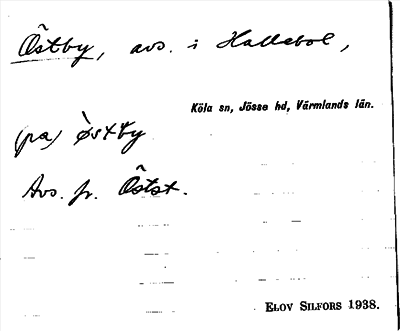 Östby, avs. i Hallebol,
Köla sn, Jösse hd, Värmlands län.
(pa) òstby
Avs. fr. Östst.
ELOV SILFORS 1938.